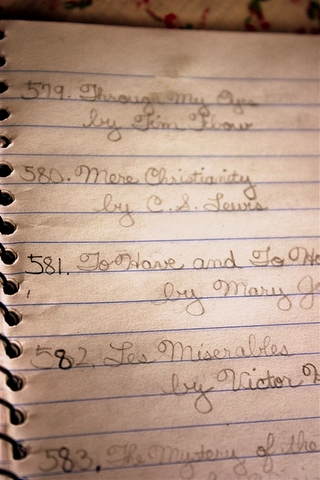 579. Through My Eyes
by Tim Tebow
580. Mere Christianity
by C. S. Lewis
581. To Have and To Ho
by Mary Jo
582. Les Miserables
by Victor H
583. The Mystery of the
by